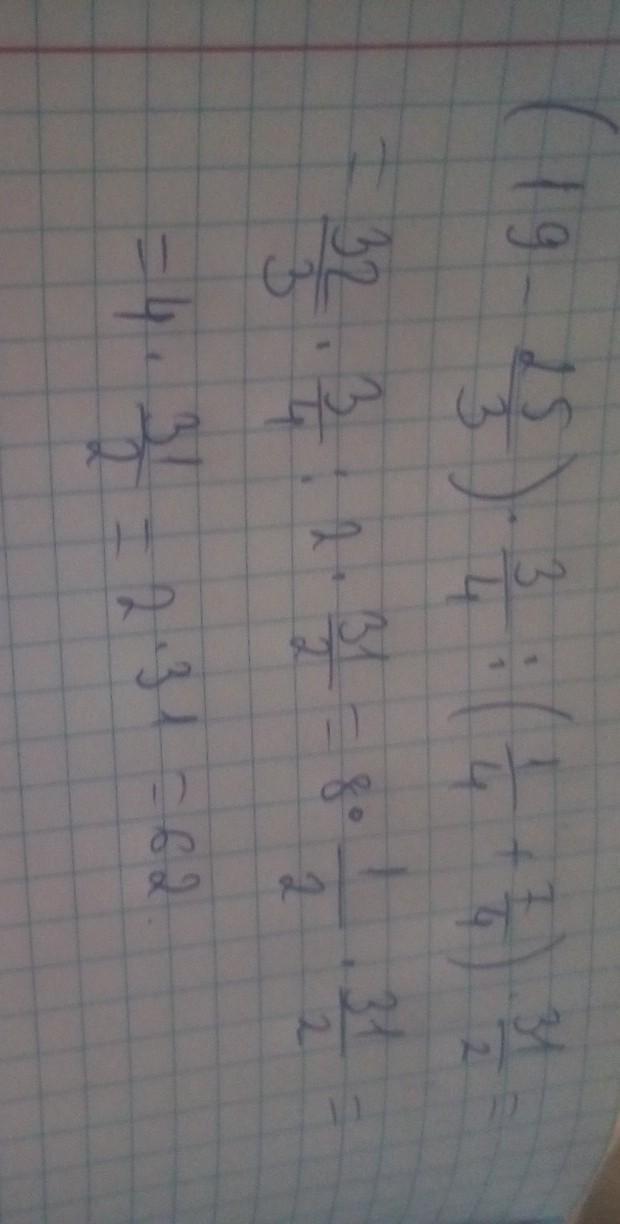 (19 - 25/3) · 3/4 : (1/4 + 7/4) · 31/2 =
= 32/3 · 3/4 : 2 · 31/2 = 8 · 1/2 · 31/2 =
= 4 · 31/2 = 2 · 31 = 62.